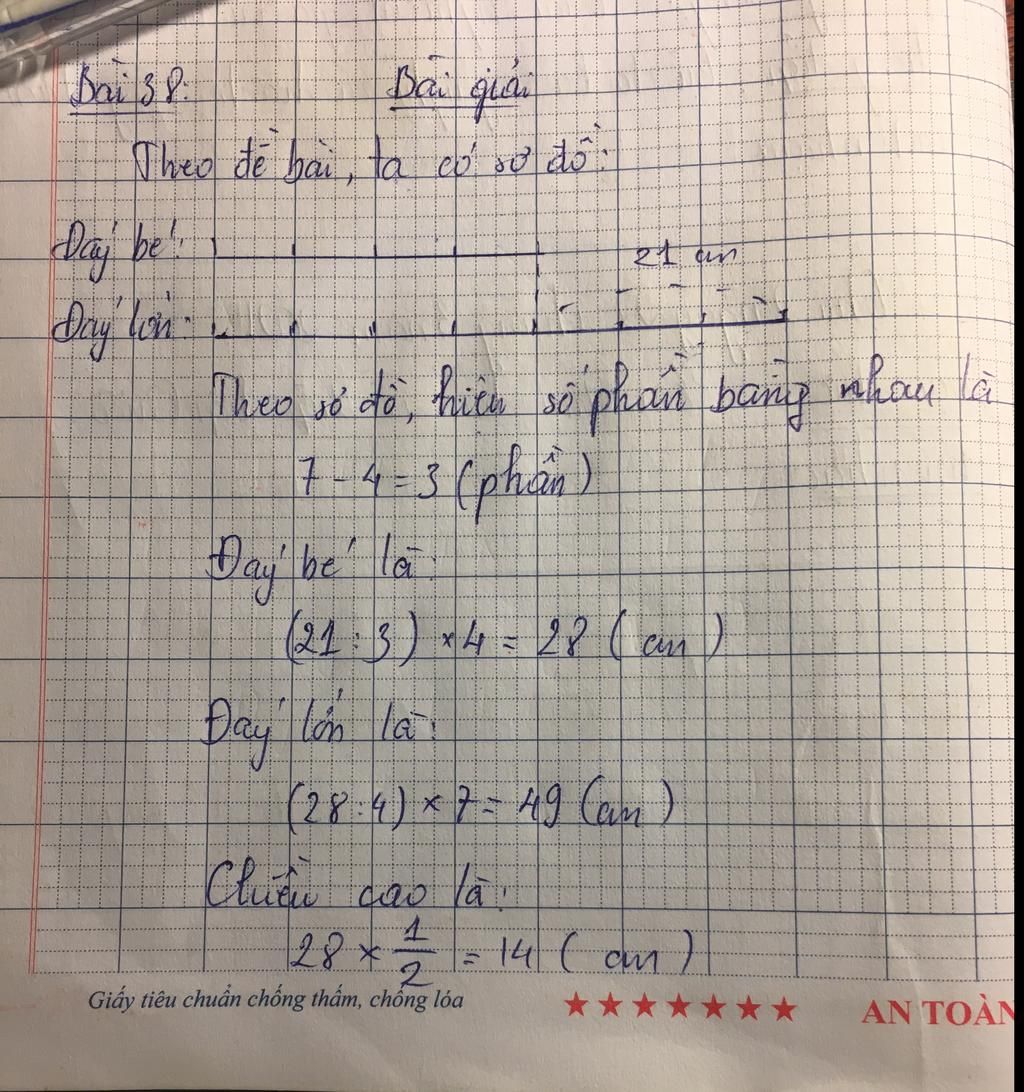 Bài 38:
Bài giải
Theo đề bài, ta có sơ đồ:
Đáy bé:
21 cm
Đáy lớn:
Theo sơ đồ, hiệu số phần bằng nhau là
7 - 4 = 3 (phần)
Đáy bé là:
(21 : 3) × 4 = 28 (cm)
Đáy lớn là:
(28 : 4) × 7 = 49 (cm)
Chiều cao là:
28 × 1/2 = 14 (cm)
Giấy tiêu chuẩn chống thấm, chống lóa
★★★★★★★ AN TOÀN